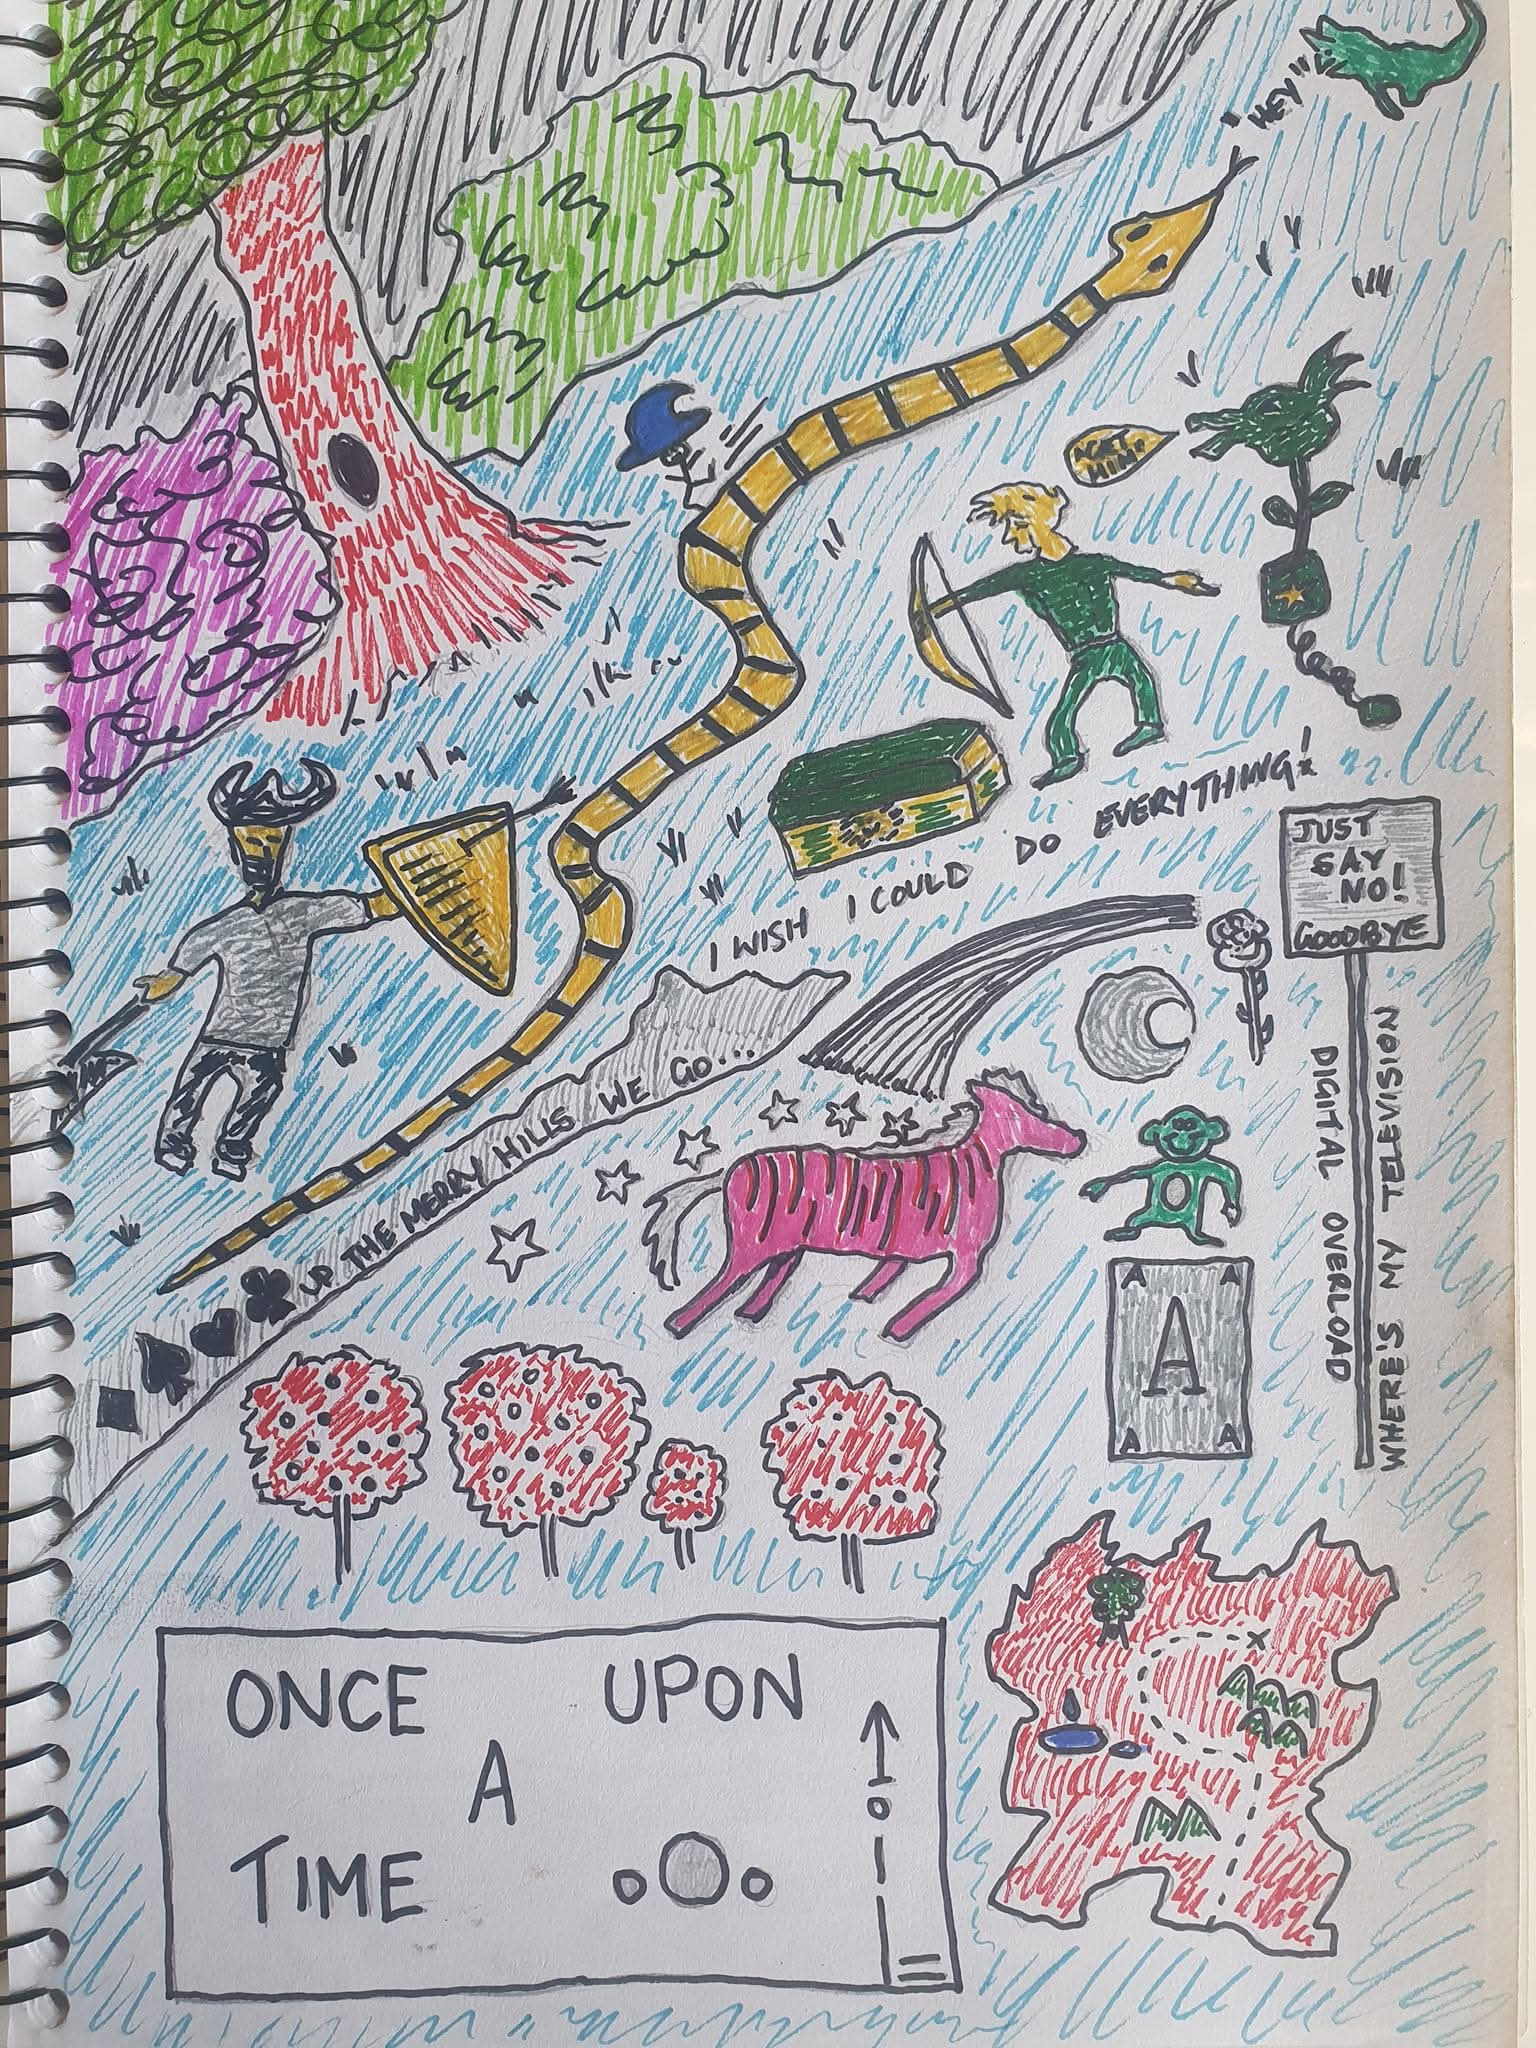 "HEY"
"GET
HIM!"
I WISH I COULD DO EVERYTHING!
JUST
SAY
NO!
GOODBYE
UP THE MERRY HILLS WE GO...
DIGITAL OVERLOAD
WHERE'S MY TELEVISION
A A
A
A A
ONCE UPON
A
TIME